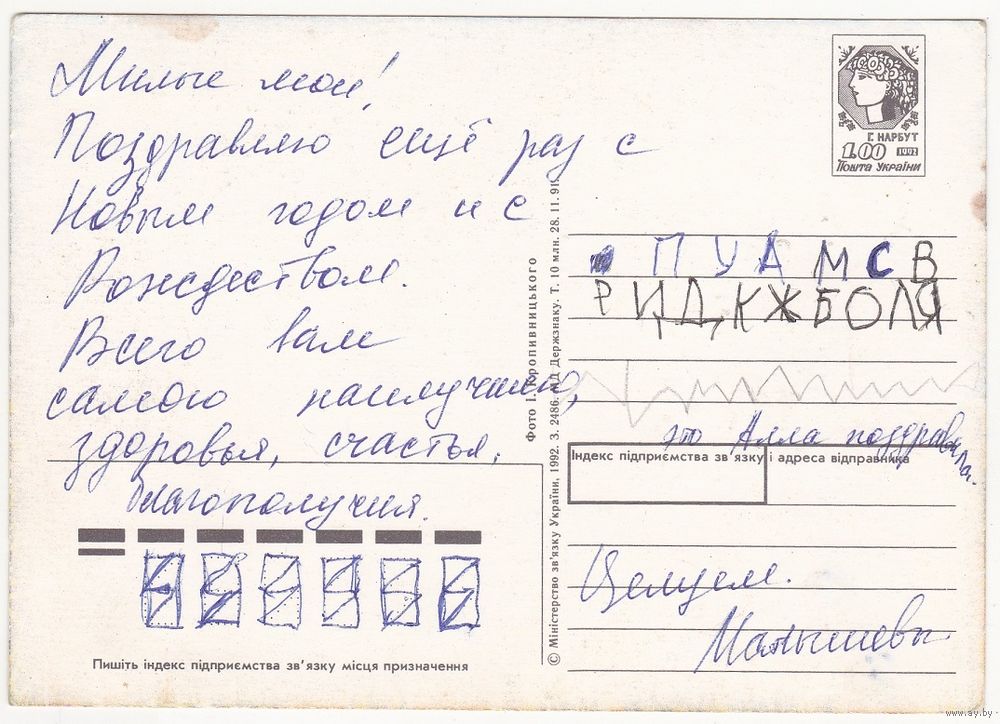 Милые мои!
Поздравляю ещё раз с
Новым годом и с
Рождеством.
Всего вам
самого наилучшего,
здоровья, счастья,
благополучия.
Пишіть індекс підприємства зв'язку місця призначення
Фото І. Кропивницького
© Міністерство зв'язку України, 1992. З. 2486. ВД Держзнаку. Т. 10 млн. 28. 11. 91.
Г. НАРБУТ
1.00 1992
ПОШТА УКРАЇНИ
ПУАМСВ
РИД,КЖБОЛЯ
это Алла поздравила.
Індекс підприємства зв'язку і адреса відправника
Целуем.
Малышевы
www.ay.by